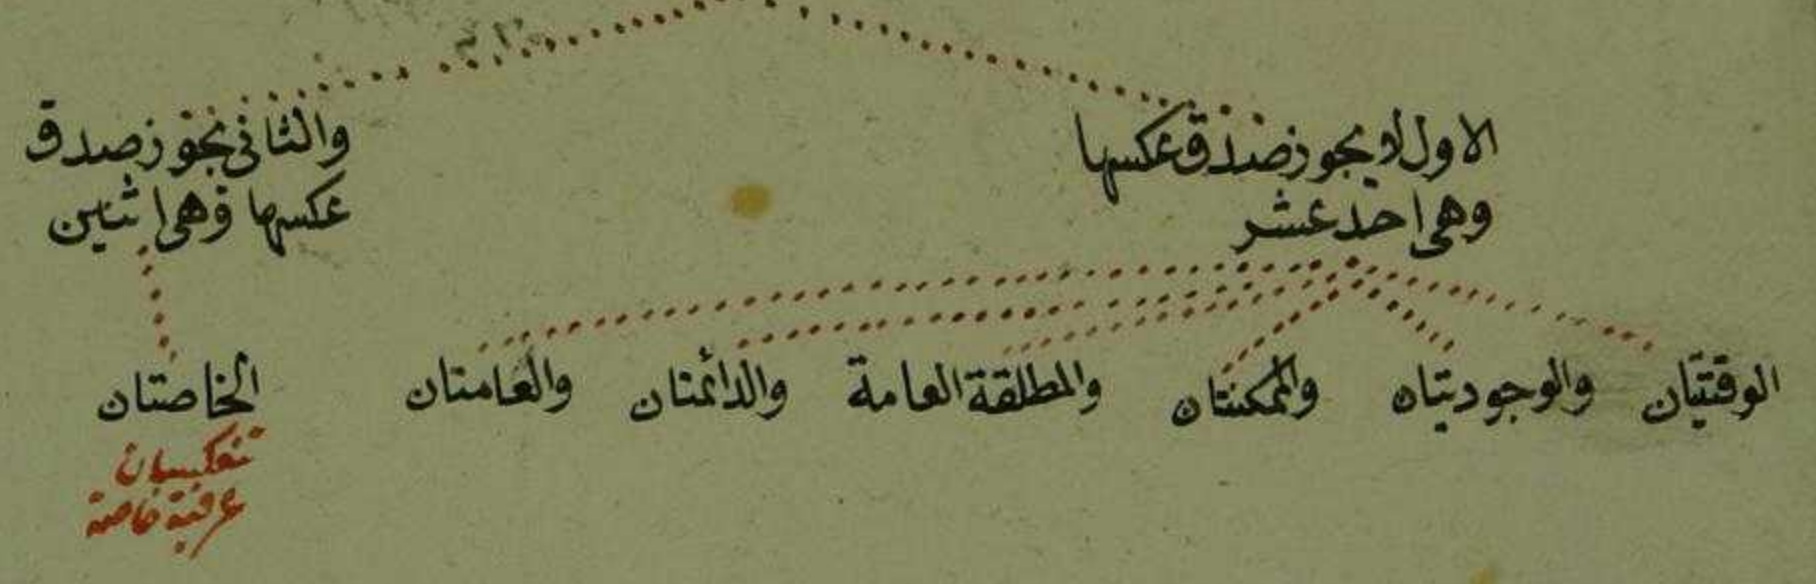 الاول لا يجوز صدق عكسها
وهي احد عشر
والثاني يجوز صدق
عكسها وهي اثنين
الوقتيتان والوجوديتان والممكنتان والمطلقة العامة والدائمتان والعامتان
الخاصتان
تنعكسان
عرفية خاصة